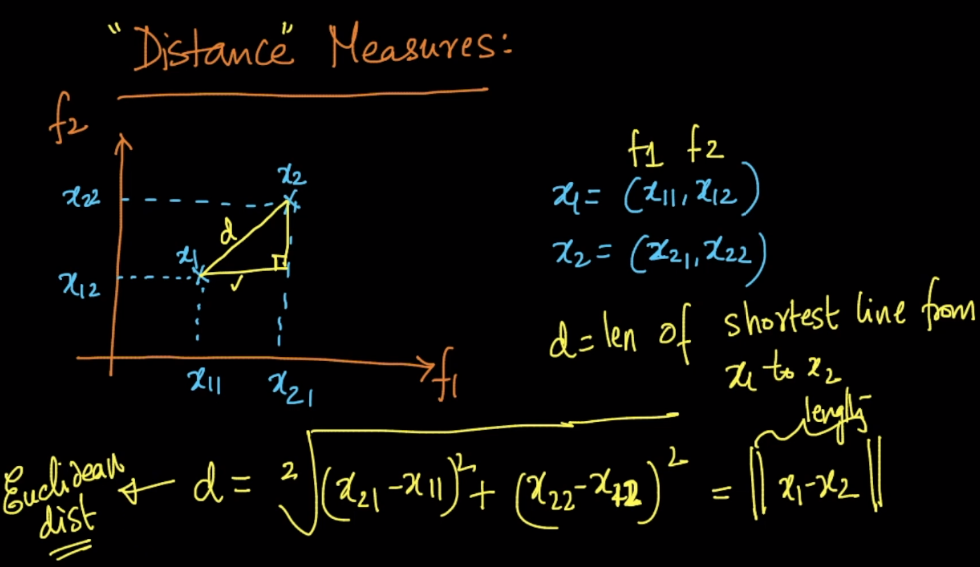 "Distance" Measures:
f2
x22
x2
d
x1
x12
x11
x21
f1
f1 f2
x1 = (x11, x12)
x2 = (x21, x22)
d = len of shortest line from
x1 to x2
length
Euclidean dist ← d = ²√(x21 - x11)² + (x22 - x12)² = || x1 - x2 ||